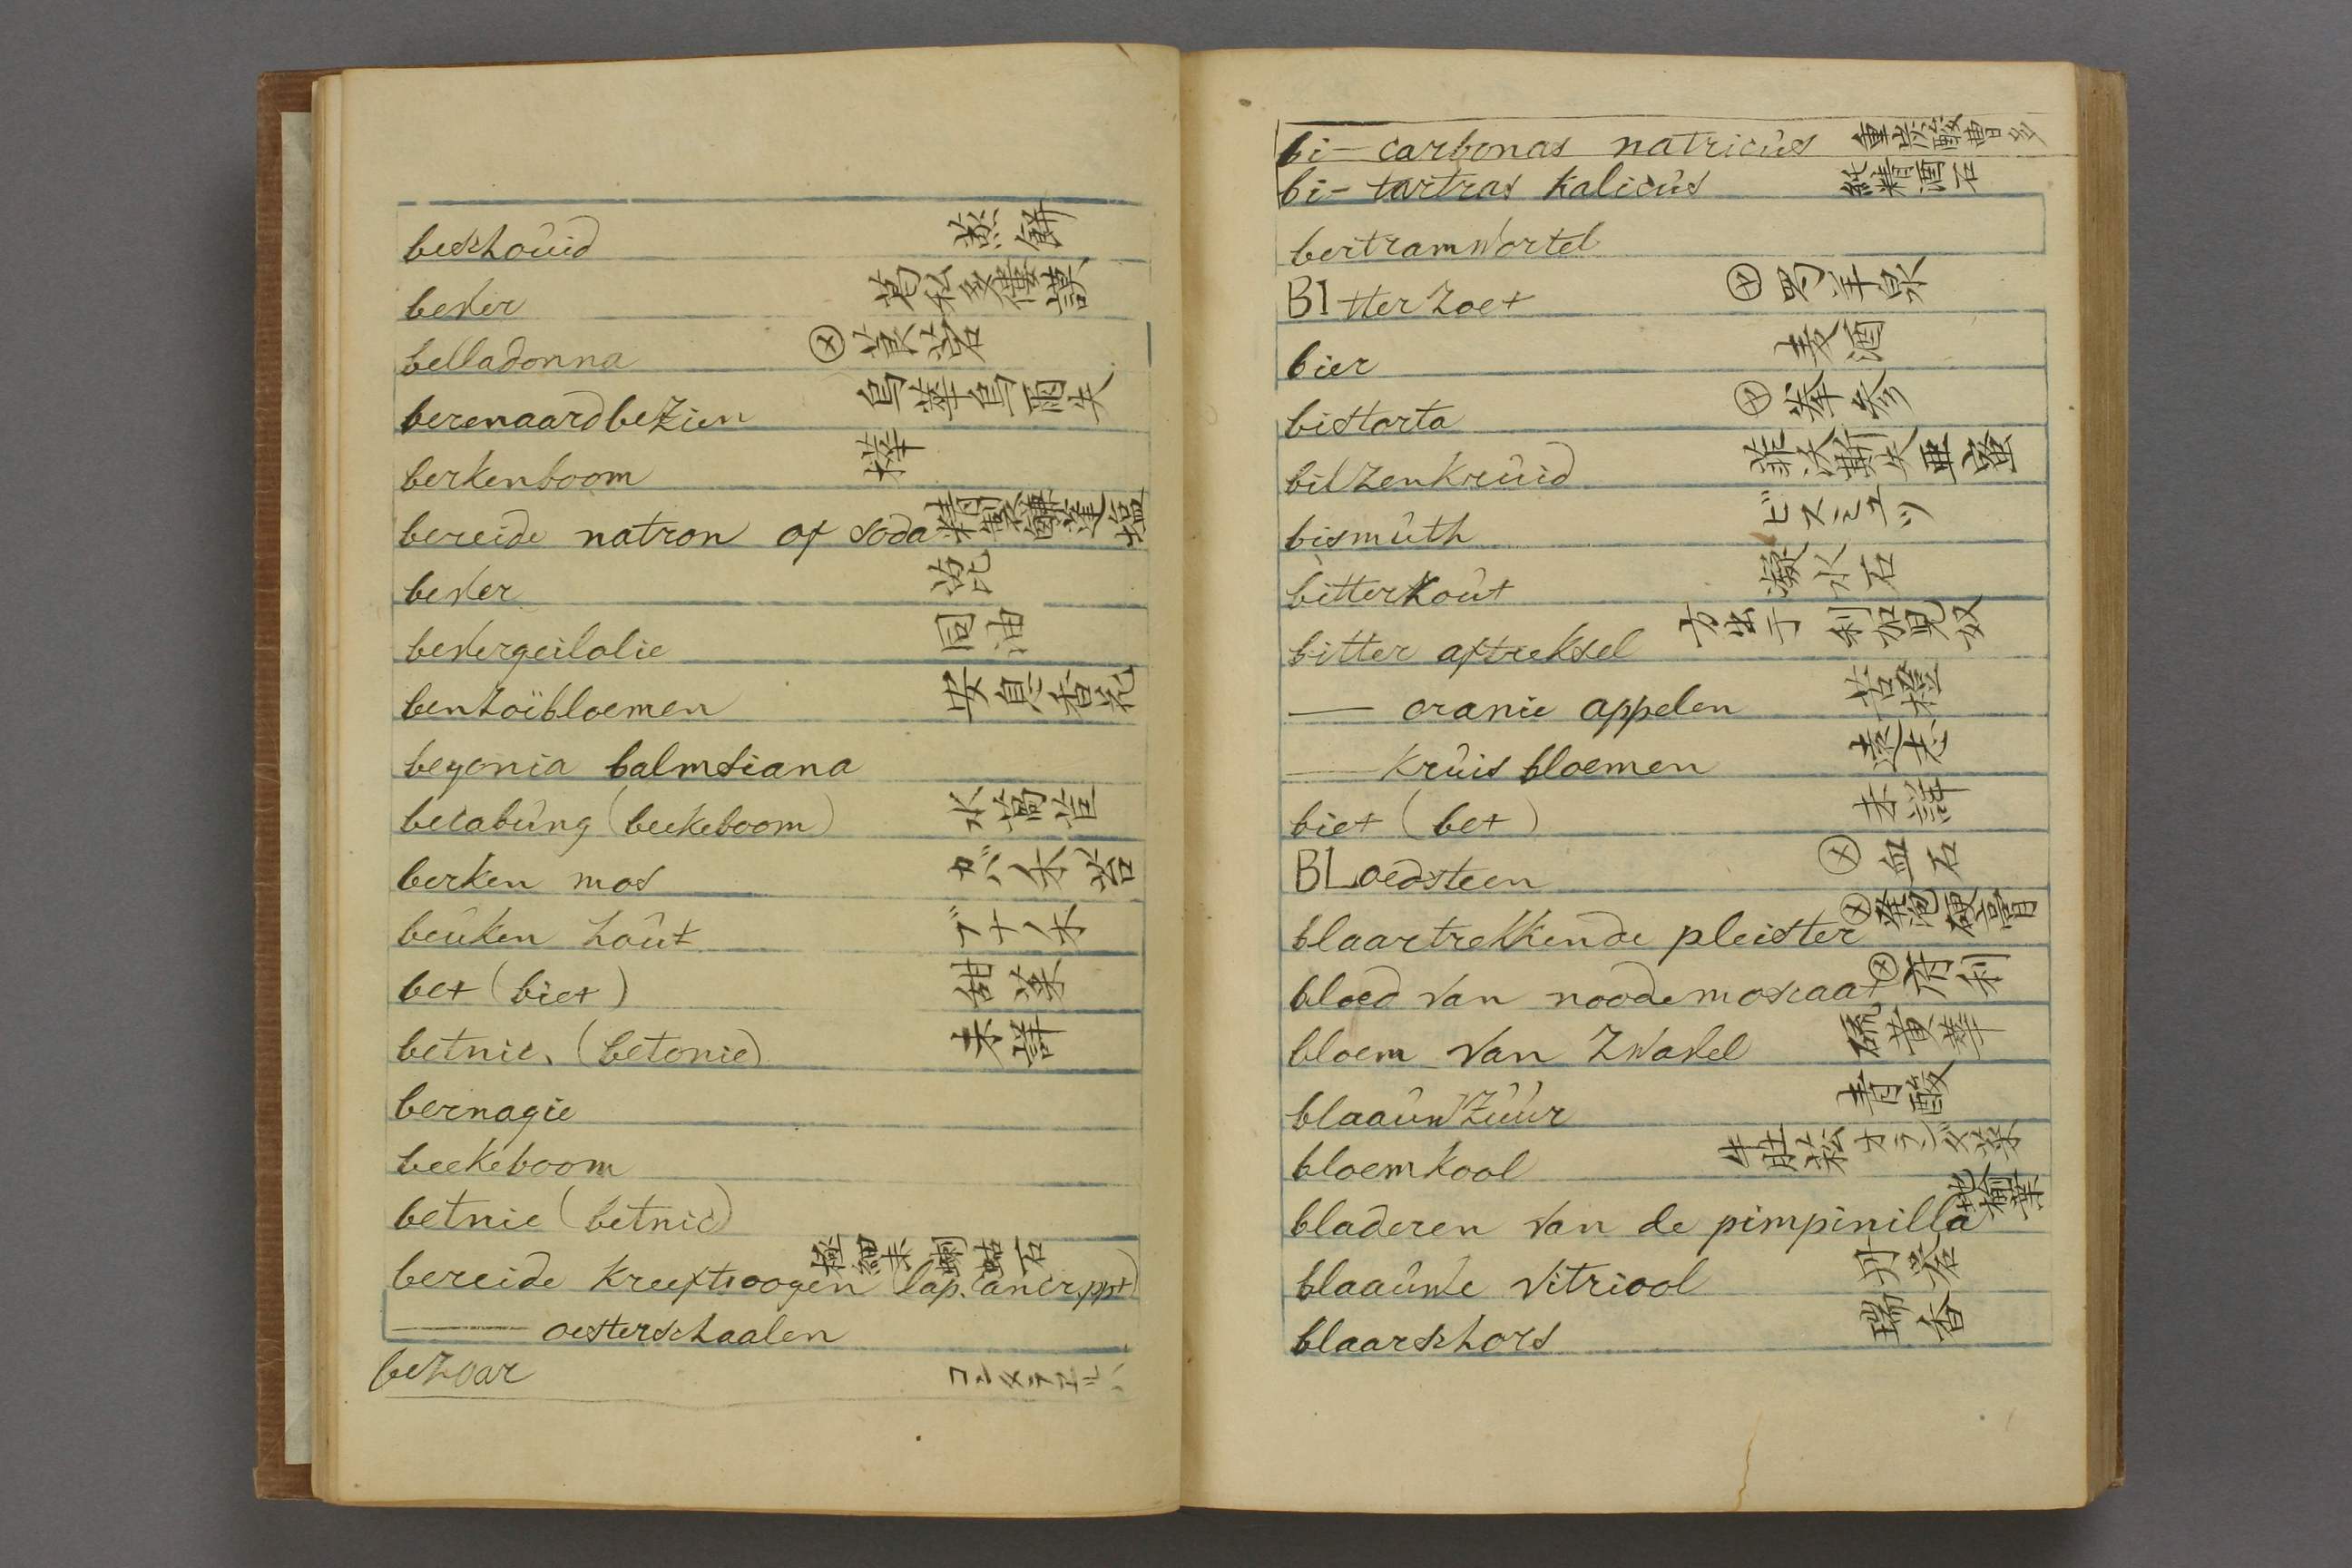 beschûid 蒸餅
bever 葛私多僂謨
belladonna ⊗ 莨菪
berenaardbezien 烏華烏爾失
berkenboom 樺
bereide natron of soda 精製 塩
bever
bevergeilolie 同油
benzoïbloemen 安息香花
begonia balmsiana
becabûng (beekeboom) 水萵苣
berken mos カバ木苔
beûken hoût ブナノ木
bet (biet) 甜菜
betnic, (betonie) 未詳
bernagie
beekeboom
betnie (betnic)
bereide kreeftsoogen (lap. cancr. ppt) 極細末蝲蛄石
—— oesterschaalen
bezoar
bi- carbonas natricûs 重炭酸曹多
bi- tartras kalicûs 純精酒石
bertramwortel
BItterzoet ⊗ 蜀羊泉
bier 麦酒
bistorta ⊗ 拳参
bilzenkrûid 菲沃斯失亜密
bismûth ビスミュツ
bitterzoût 凝水石
bitter aftreksel 方出于 利加兒奴
—— oranie appelen 苦橙
—— krûisbloemen 遠志
biet (bet) 未詳
BLoedsteen ⊗ 血石
blaartrekkende pleister ⊗ 発泡硬膏
bloed van noodemoscaat ⊗
bloem van Zwavel 硫黄華
blaaûwzûûr 青酸
bloemkool 牛肚菘 オランダ菜
bladeren van de pimpinilla 地楡葉
blaaûwe vitriool 丹礬
blaarschors 瑞香